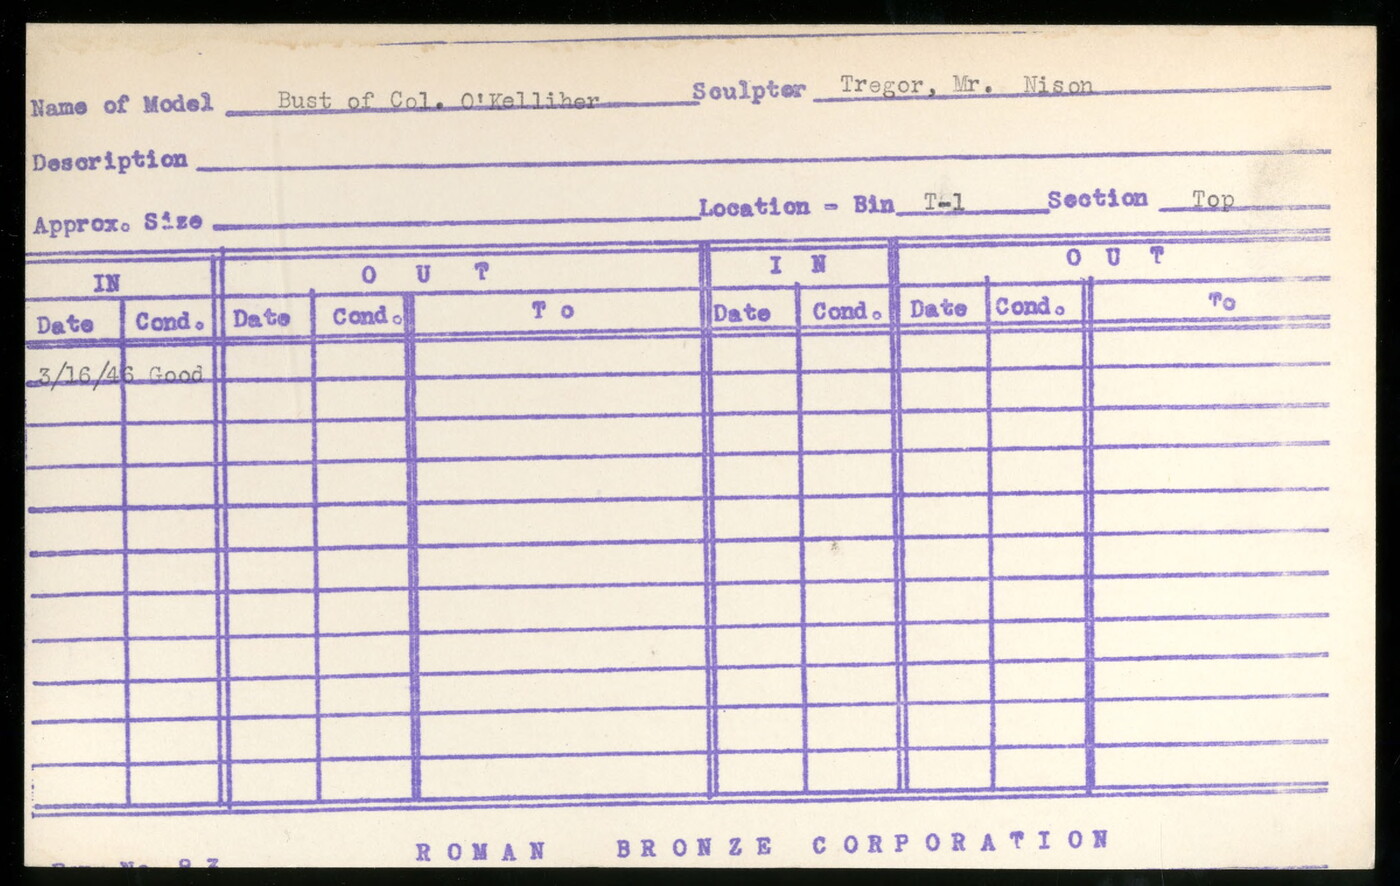 Name of Model Bust of Col. O'Kelliher Sculptor Tregor, Mr. Nison
Description
Approx. Size Location - Bin T-1 Section Top
IN O U T I N O U T
Date Cond. Date Cond. T o Date Cond. Date Cond. To
3/16/46 Good
ROMAN BRONZE CORPORATION
No. 83